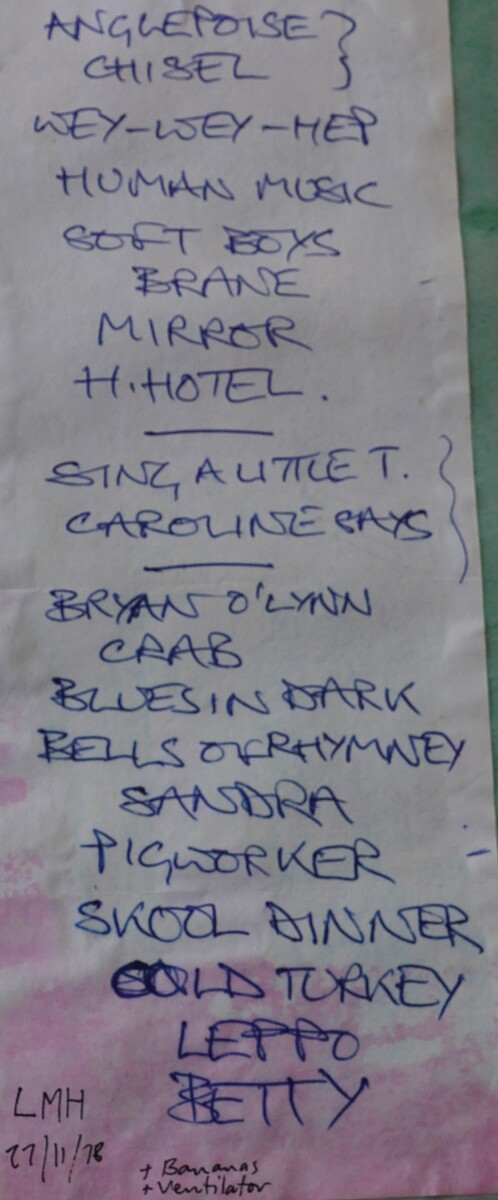 ANGLEPOISE
CHISEL
WEY-WEY-HEP
HUMAN MUSIC
SOFT BOYS
BRANE
MIRROR
H.HOTEL.
SING A LITTLE T.
CAROLINE SAYS
BRYAN O'LYNN
CRAB
BLUES IN DARK
BELLS OF RHYMNEY
SANDRA
PIGWORKER
SKOOL DINNER
COLD TURKEY
LEPPO
BETTY
LMH
27/11/78
+ Bananas
+ Ventilator